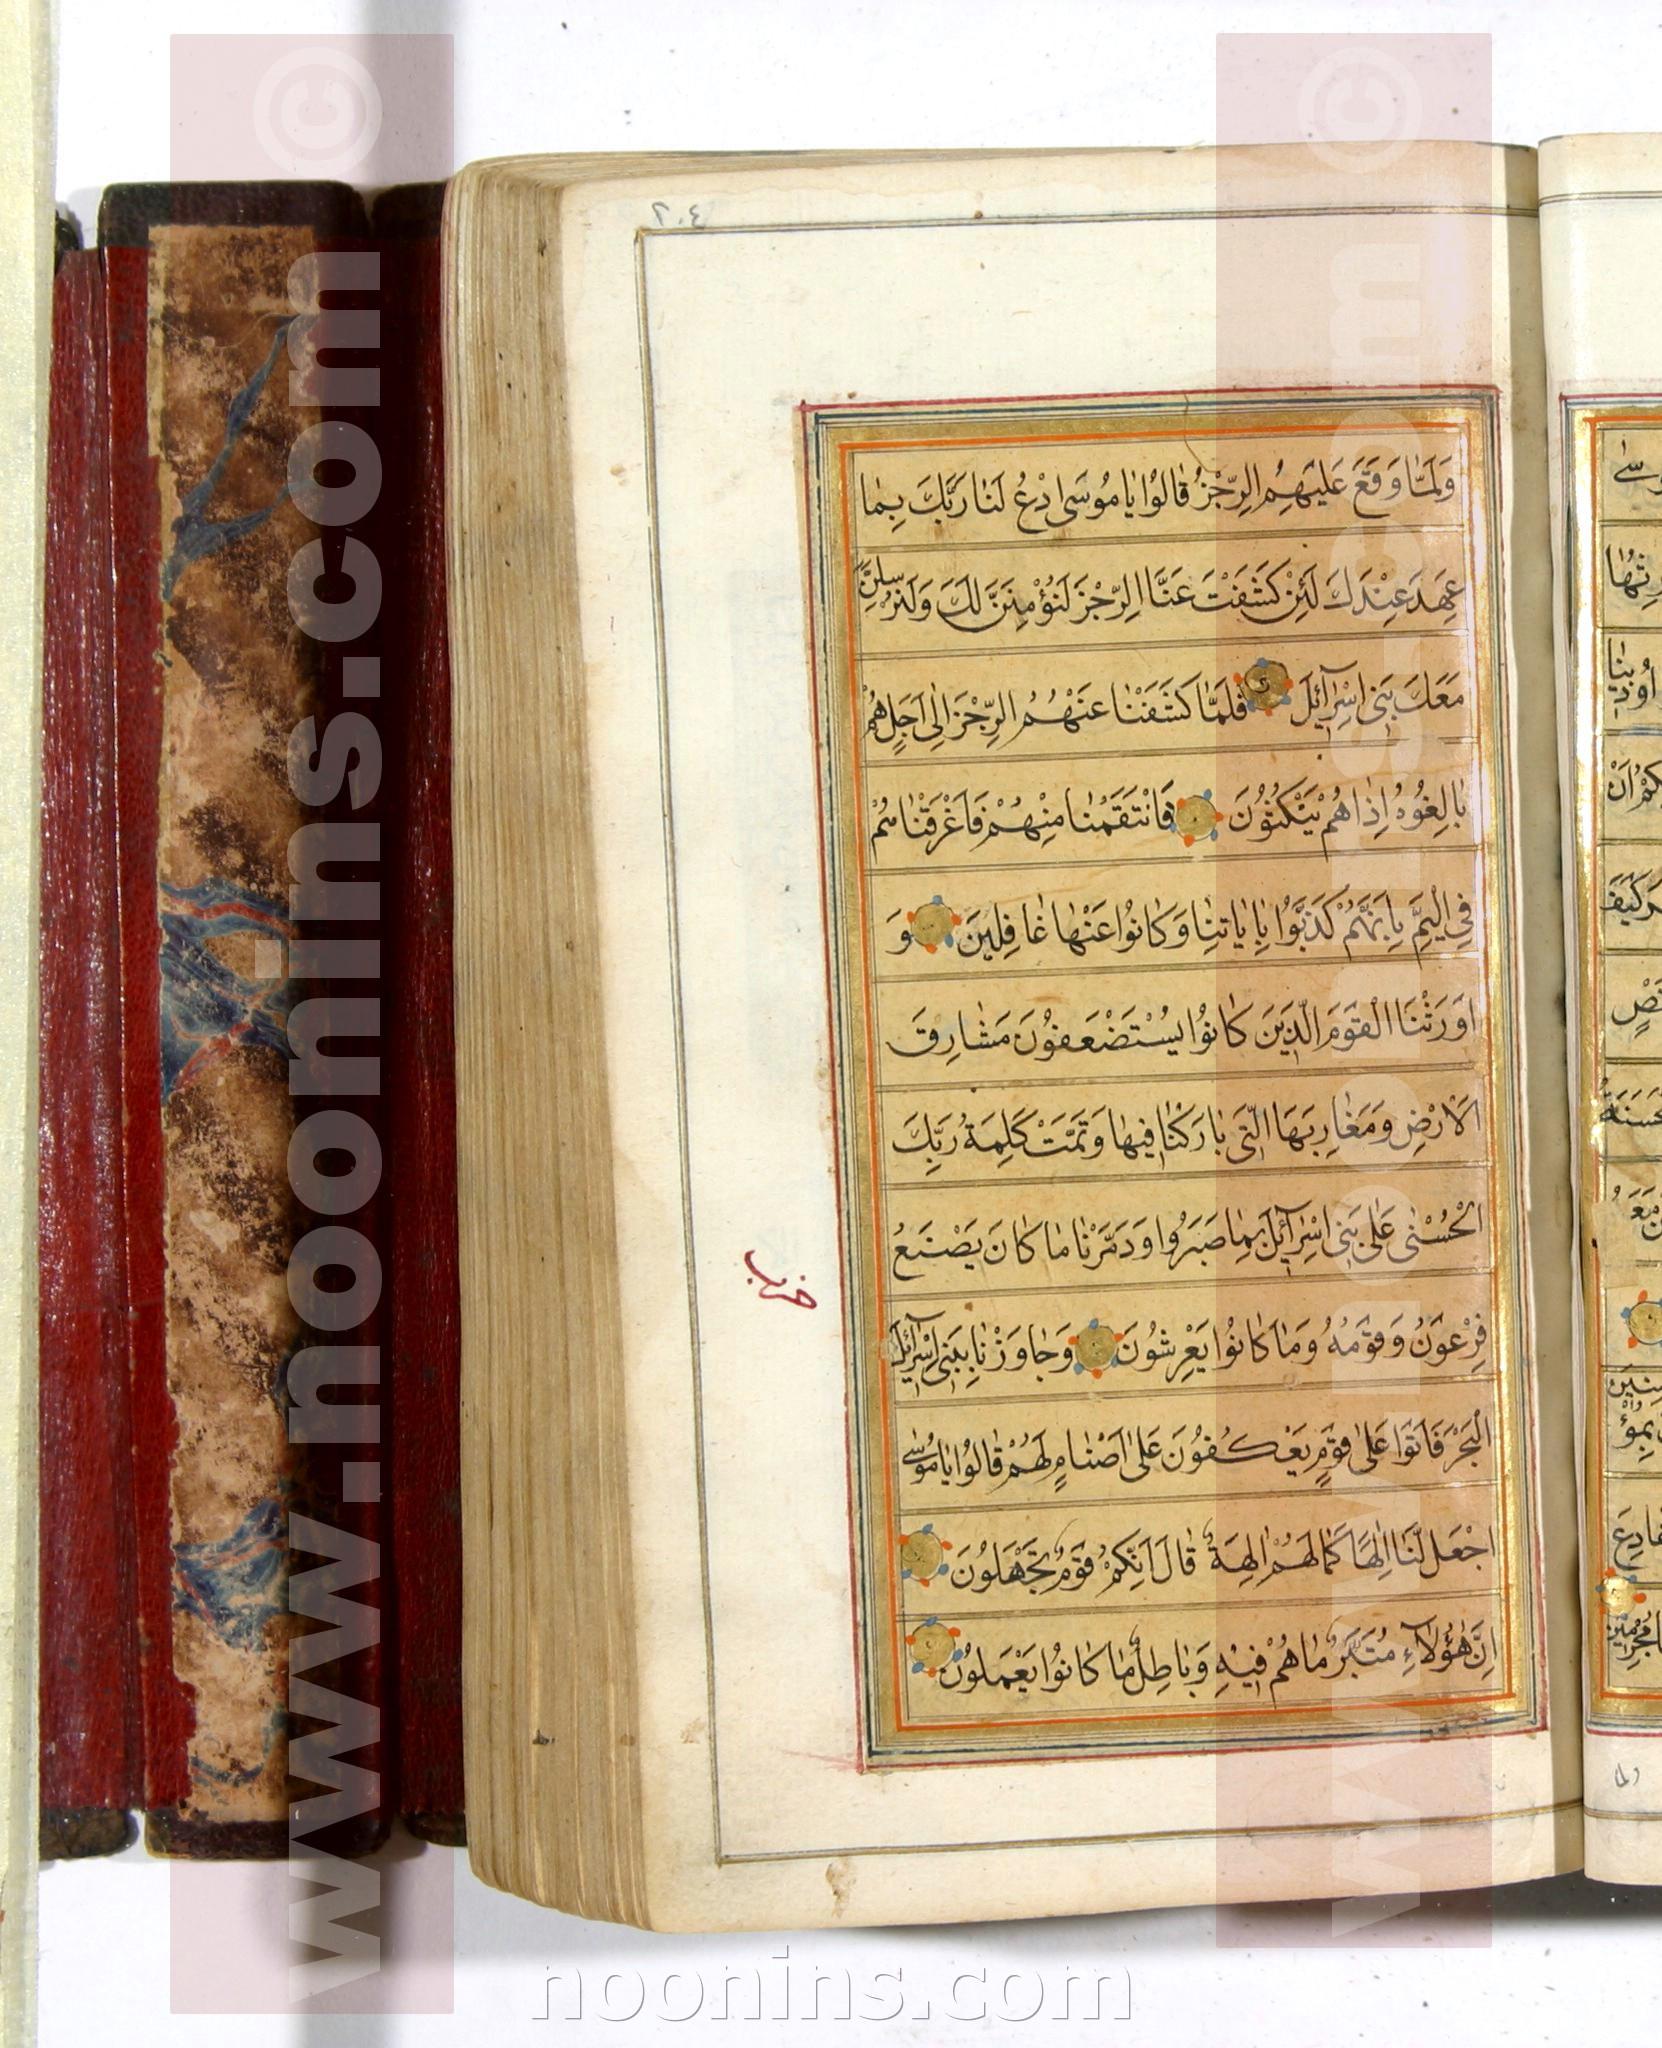 ٢٠٤
وَلَمّٰا وَقَعَ عَلَيْهِمُ الرِّجْزُ قٰالُوا يٰا مُوسَى ادْعُ لَنٰا رَبَّكَ بِمٰا
عَهِدَ عِنْدَكَ لَئِنْ كَشَفْتَ عَنَّا الرِّجْزَ لَنُؤْمِنَنَّ لَكَ وَلَنُرْسِلَنَّ
مَعَكَ بَنِي اِسْرٰآئِلَ فَلَمّٰا كَشَفْنٰا عَنْهُمُ الرِّجْزَ اِلٰى اَجَلٍ هُمْ
بٰالِغُوهُ اِذٰا هُمْ يَنْكُثُونَ فَانْتَقَمْنٰا مِنْهُمْ فَاَغْرَقْنٰاهُمْ
فِي الْيَمِّ بِاَنَّهُمْ كَذَّبُوا بِاٰيٰاتِنٰا وَكٰانُوا عَنْهٰا غٰافِلِينَ وَ
اَوْرَثْنَا الْقَوْمَ الَّذِينَ كٰانُوا يُسْتَضْعَفُونَ مَشٰارِقَ
الْاَرْضِ وَمَغٰارِبَهَا الَّتِي بٰارَكْنٰا فِيهٰا وَتَمَّتْ كَلِمَةُ رَبِّكَ
الْحُسْنٰى عَلٰى بَنِي اِسْرٰآئِلَ بِمٰا صَبَرُوا وَدَمَّرْنٰا مٰا كٰانَ يَصْنَعُ
فِرْعَوْنُ وَقَوْمُهُ وَمٰا كٰانُوا يَعْرِشُونَ وَجٰاوَزْنٰا بِبَنِي اِسْرٰآئِلَ
الْبَحْرَ فَاَتَوْا عَلٰى قَوْمٍ يَعْكُفُونَ عَلٰى اَصْنٰامٍ لَهُمْ قٰالُوا يٰا مُوسَى
اجْعَلْ لَنٰا اِلٰهًا كَمٰا لَهُمْ اٰلِهَةٌ قٰالَ اِنَّكُمْ قَوْمٌ تَجْهَلُونَ
اِنَّ هٰؤُلٰآءِ مُتَبَّرٌ مٰا هُمْ فِيهِ وَبٰاطِلٌ مٰا كٰانُوا يَعْمَلُونَ
حزب
www.noonins.com ©
www.noonins.com ©
noonins.com